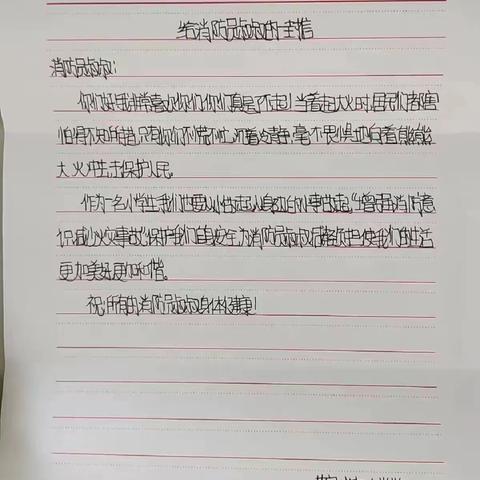 给消防员叔叔的一封信
消防员叔叔：
你们好！我非常喜欢你们，你们真是了不起！当着起大火时，居民们都害
怕得不知所措，只有你们不慌不忙，沉着冷静，毫不畏惧地向着熊熊
大火冲去，保护人民。
作为一名小学生，我们也要从小做起，从身边的小事做起，“增强消防意
识，减少火灾事故”保护我们自身安全，为消防员叔叔们，使我们的生活
更加美好，更加和谐。
祝所有的消防员叔叔身体健康！